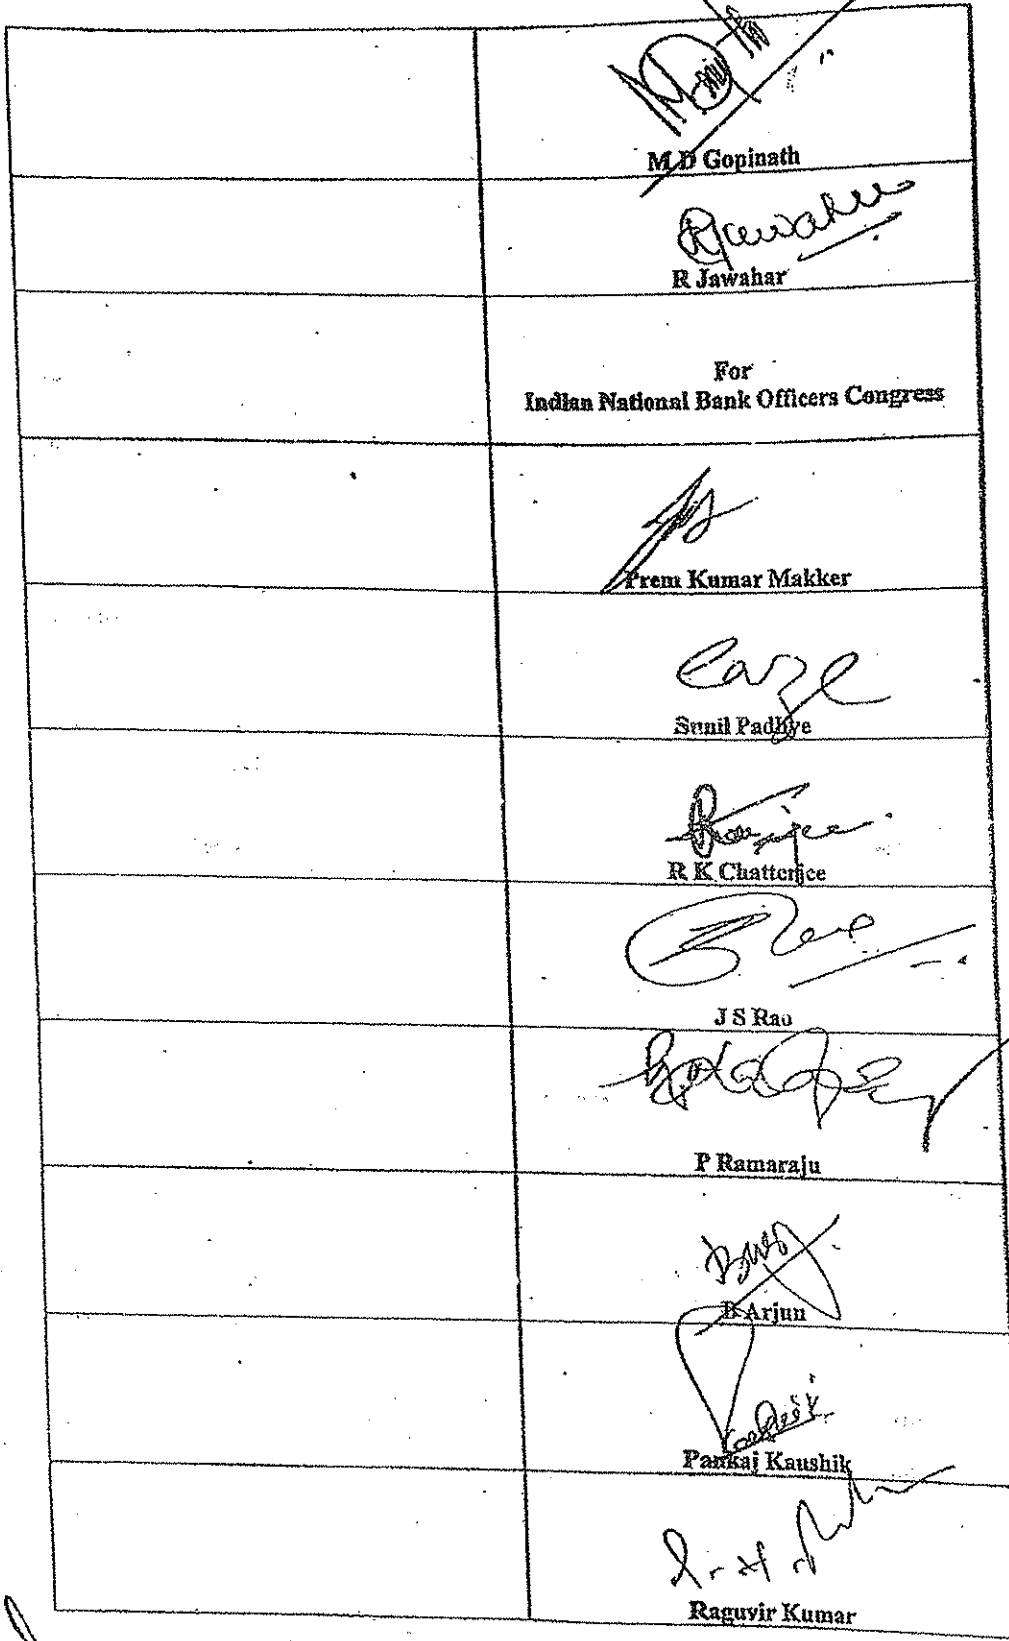 M D Gopinath
R Jawahar
For
Indian National Bank Officers Congress
Prem Kumar Makker
Sunil Padhye
R K Chatterjee
J S Rao
P Ramaraju
B Arjun
Pankaj Kaushik
Raguvir Kumar